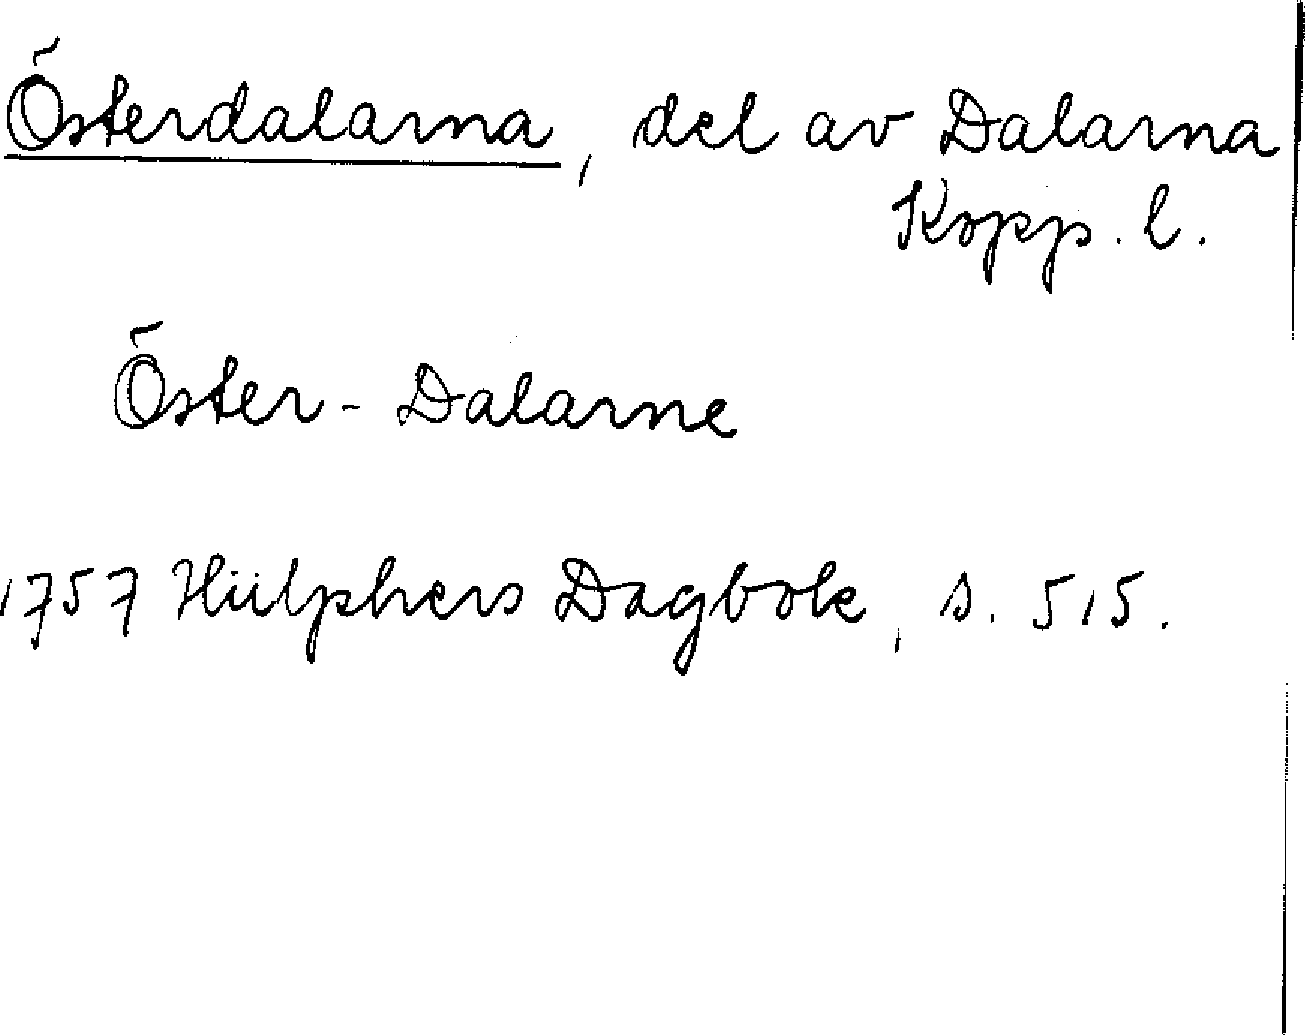 Österdalarna, del av Dalarna
Kopp. l.
Öster-Dalarne
1757 Hülphers Dagbok, s. 515.